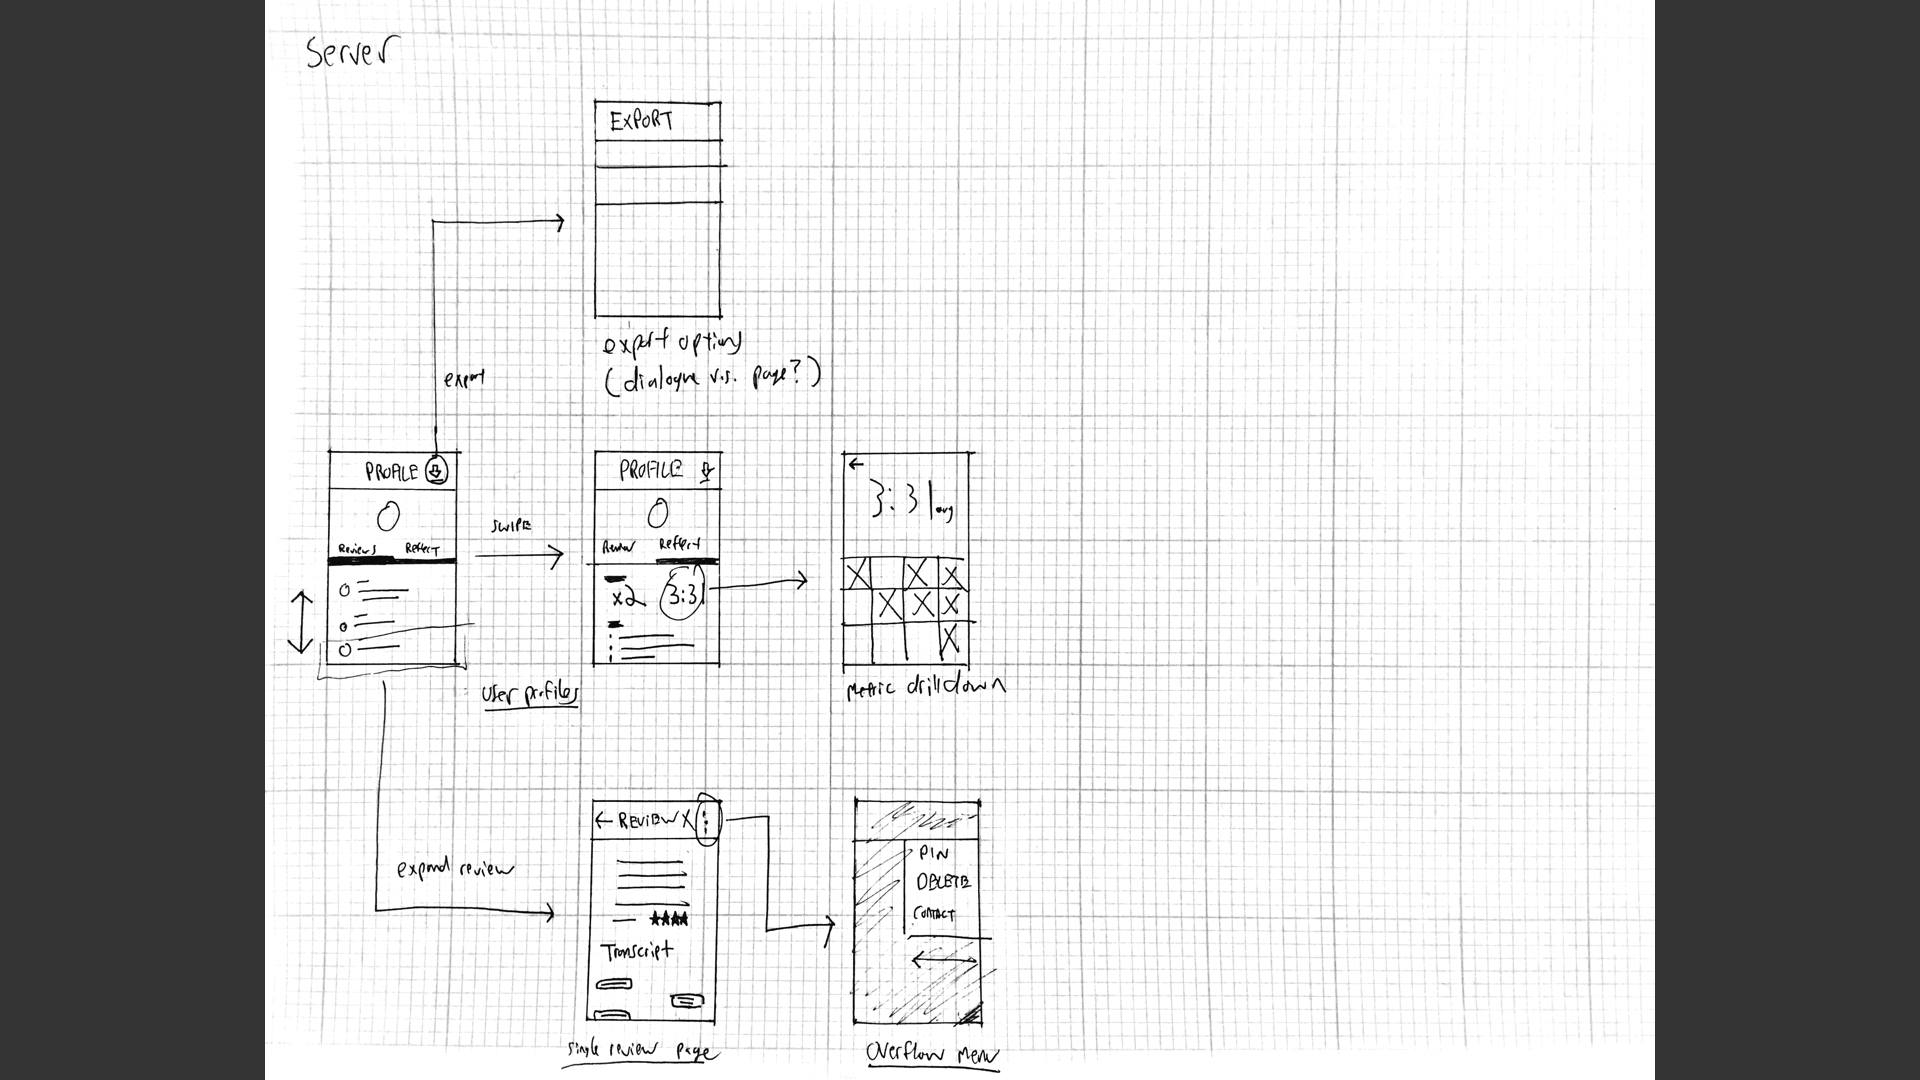 Server
EXPORT
export options
(dialogue v.s. page?)
export
PROFILE
Reviews Reflect
SWIPE
PROFILE
Review Reflect
x2 3:31
3:31 avg
user profiles
Metric drilldown
expand review
← REVIEW X
Transcript
single review page
PIN
DELETE
CONTACT
Overflow Menu